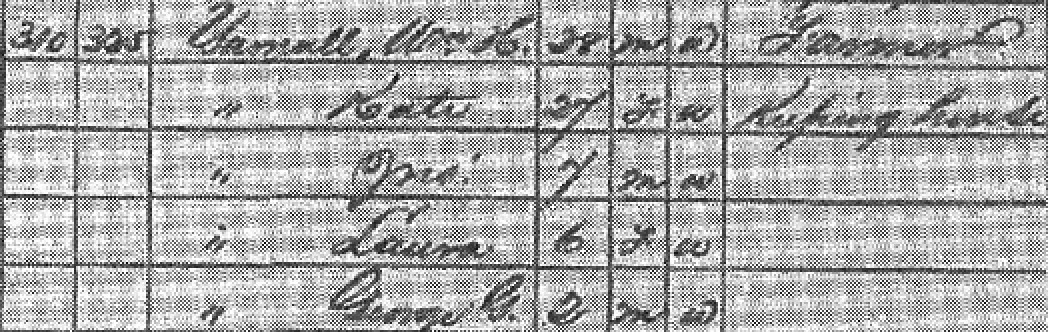 310 325 Yarnall, Wm H. 38 m w Farmer
" Kate 37 F w Keeping house
" Jno. 7 m w
" Laura 6 F w
" George G. 2 m w